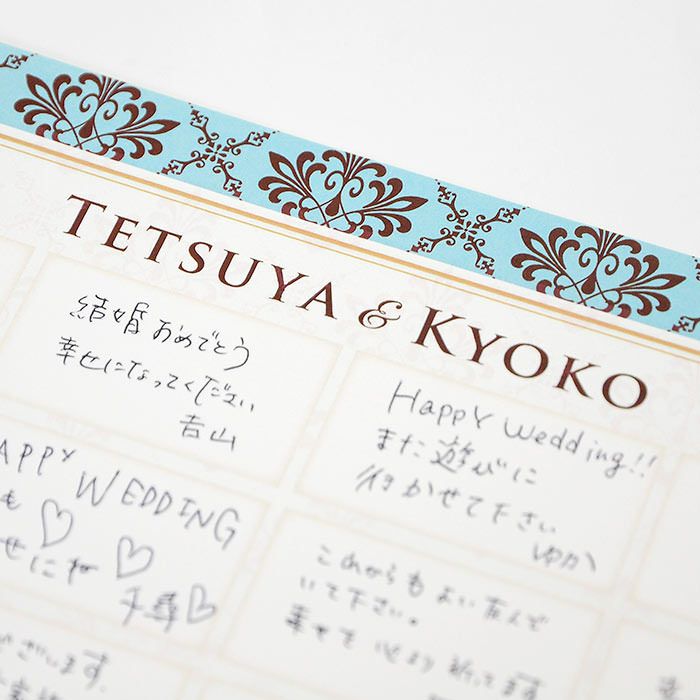 TETSUYA & KYOKO
結婚おめでとう
幸せになってください
吉山
Happy Wedding!!
また遊びに
行かせて下さい
ゆか
APPY WEDDING
も
せにね
千尋
これからもよい友人で
いて下さい。
幸せを心より祈ってます
ございます。